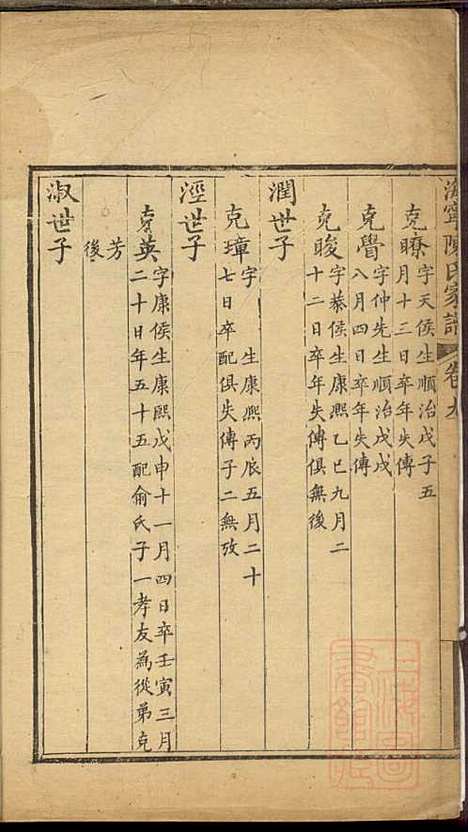 海寧陳氏家譜 卷九
克瞭字天侯生順治戊子五
月十三日卒年失傳
克覺字仲先生順治戊戌
八月四日卒年失傳
克晙字恭侯生康熙乙巳九月二
十二日卒年失傳俱無後
潤世子
克璋字 生康熙丙辰五月二十
七日卒配俱失傳子二無攷
涇世子
克英字康侯生康熙戊申十一月四日卒壬寅三月
二十日年五十五配俞氏子一孝友為從弟克
芳後
淑世子